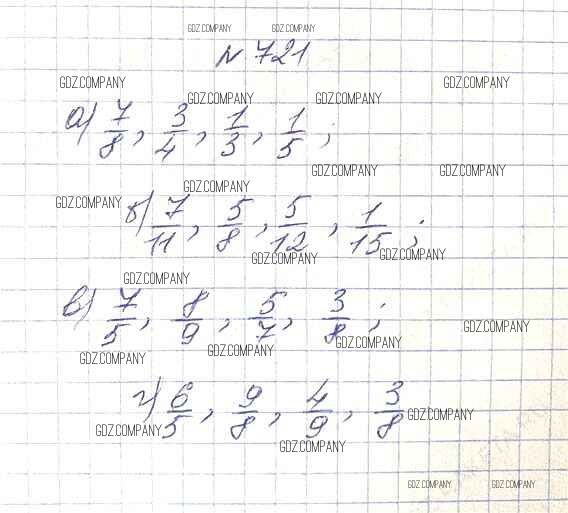 GDZ.COMPANY GDZ.COMPANY
№ 721
GDZ.COMPANY GDZ.COMPANY
GDZ.COMPANY GDZ.COMPANY
а) 7/8, 3/4, 1/3, 1/5;
GDZ.COMPANY GDZ.COMPANY
GDZ.COMPANY
GDZ.COMPANY
б) 7/11, 5/8, 5/12, 1/15;
GDZ.COMPANY GDZ.COMPANY
GDZ.COMPANY
в) 7/5, 8/9, 5/7, 3/8;
GDZ.COMPANY
GDZ.COMPANY GDZ.COMPANY GDZ.COMPANY
г) 6/5, 9/8, 4/9, 3/8
GDZ.COMPANY
GDZ.COMPANY GDZ.COMPANY
GDZ.COMPANY GDZ.COMPANY